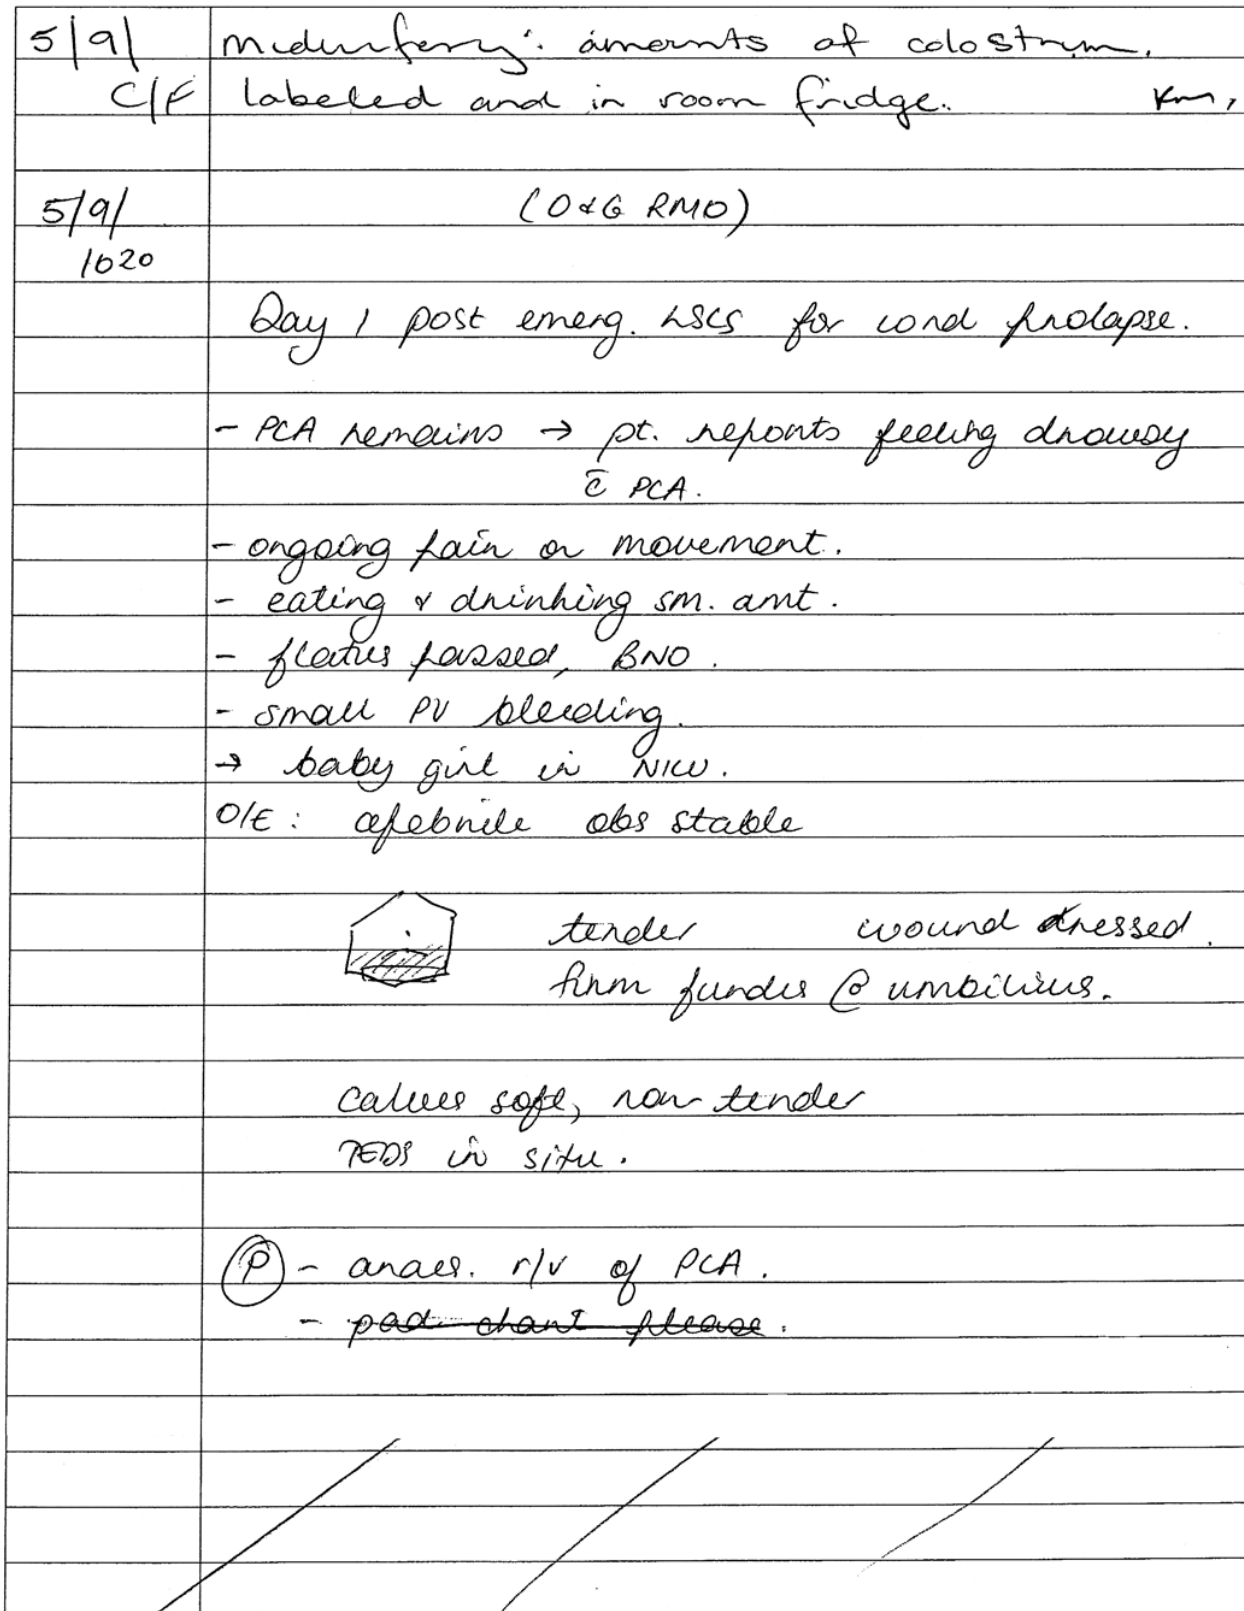 5/9/ Midwifery: amounts of colostrum,
C/F labeled and in room fridge.
5/9/ (O&G RMO)
1020
Day 1 post emerg. LSCS for cord prolapse.
- PCA remains → pt. reports feeling drowsy
c̄ PCA.
- ongoing pain on movement.
- eating & drinking sm. amt.
- flatus passed, BNO.
- small PV bleeding.
→ baby girl in NICU.
O/E: afebrile obs stable
tender wound dressed.
firm fundus @ umbilicus.
calves soft, non tender
TEDS in situ.
(P) - anaes. r/v of PCA.
- pad chart please.